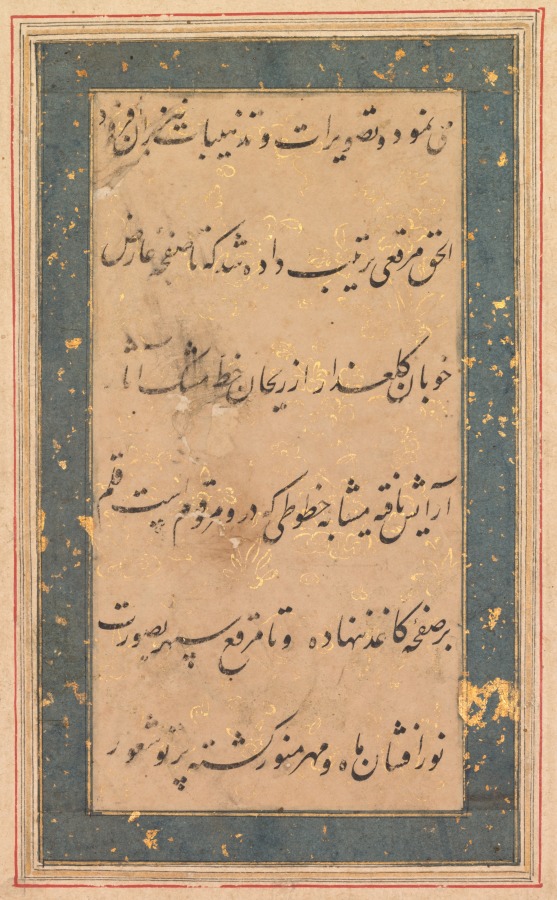 می نمود و تصویرات و تذهیبات نیز بران افزود
الحق مرقعی ترتیب داده شد که تا صفحهٔ عارض
خوبان گلعذار از ریحان خط مشک آثار
آرایش یافته مشابه خطوطی که درو مرقومست قلم
بر صفحهٔ کاغذ نهاده و تا مرقع سپهر بصورت
نور افشان ماه و مهر منور گشته پرتو شعور